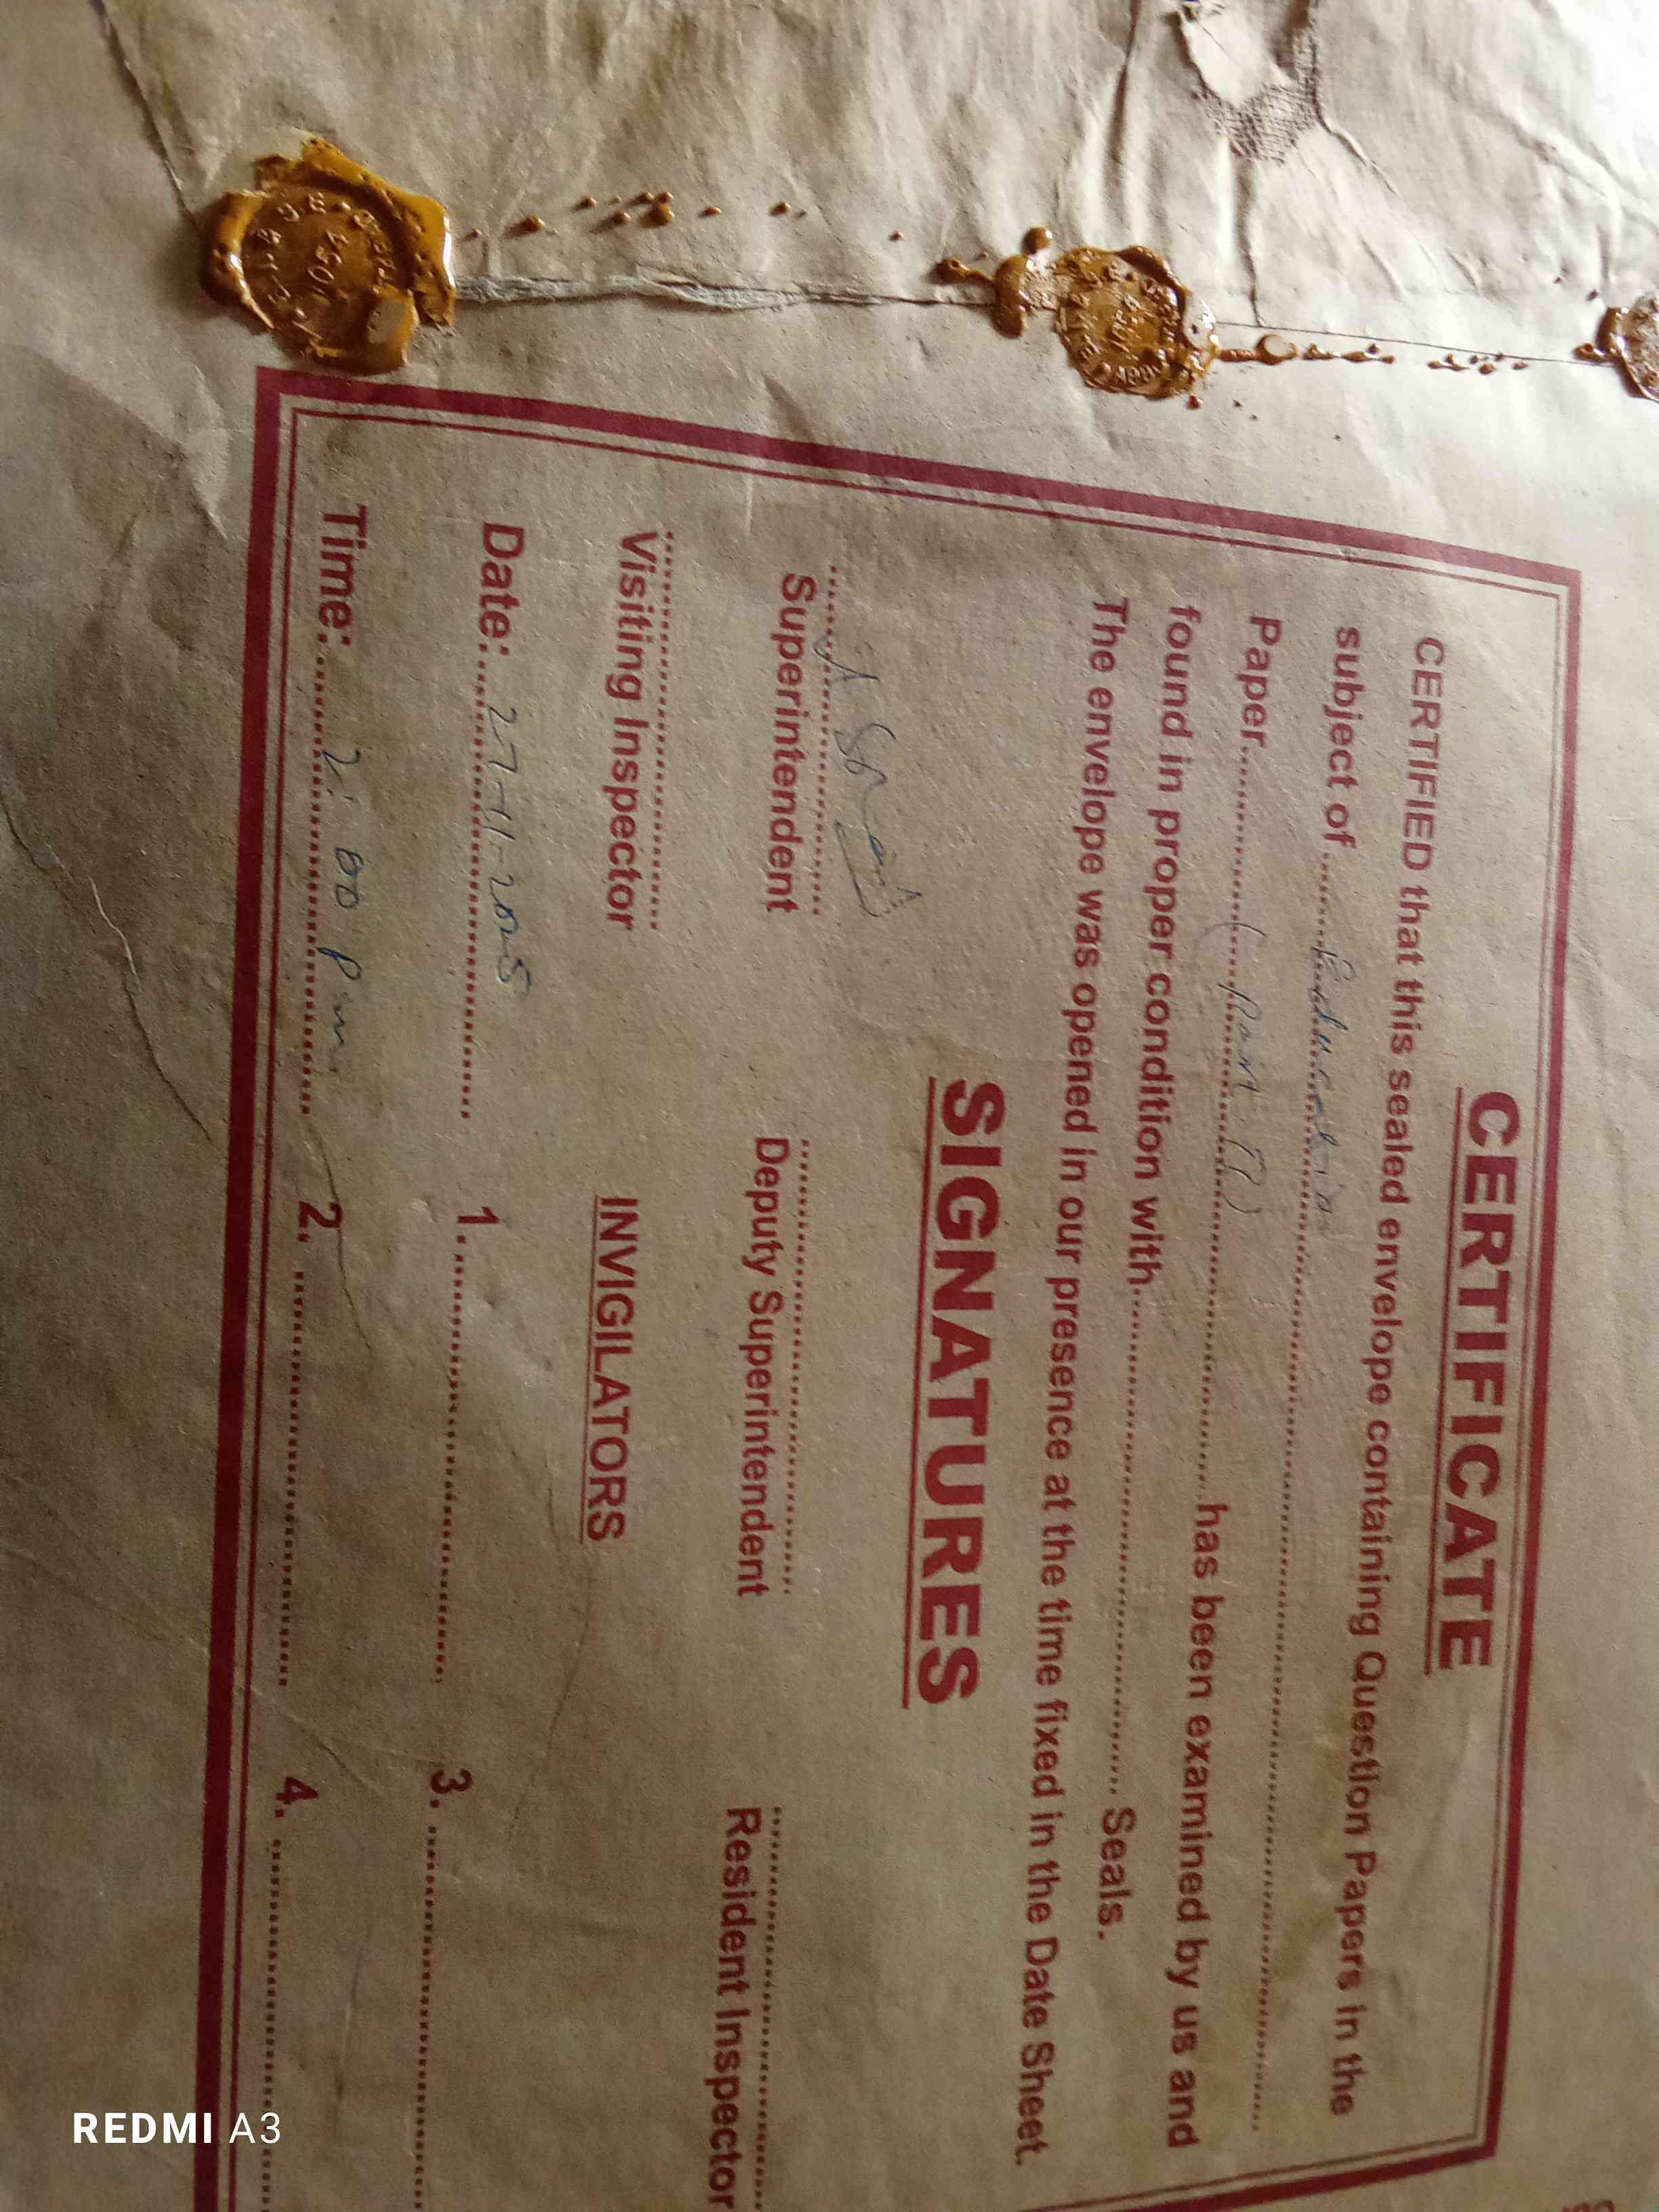 CERTIFICATE
CERTIFIED that this sealed envelope containing Question Papers in the
subject of Education
Paper (Part II) has been examined by us and
found in proper condition with Seals.
The envelope was opened in our presence at the time fixed in the Date Sheet.
SIGNATURES
Superintendent Deputy Superintendent Resident Inspector
Visiting Inspector INVIGILATORS
Date: 27-11-2025 1. 3.
Time: 2:00 Pm 2. 4.
REDMI A3